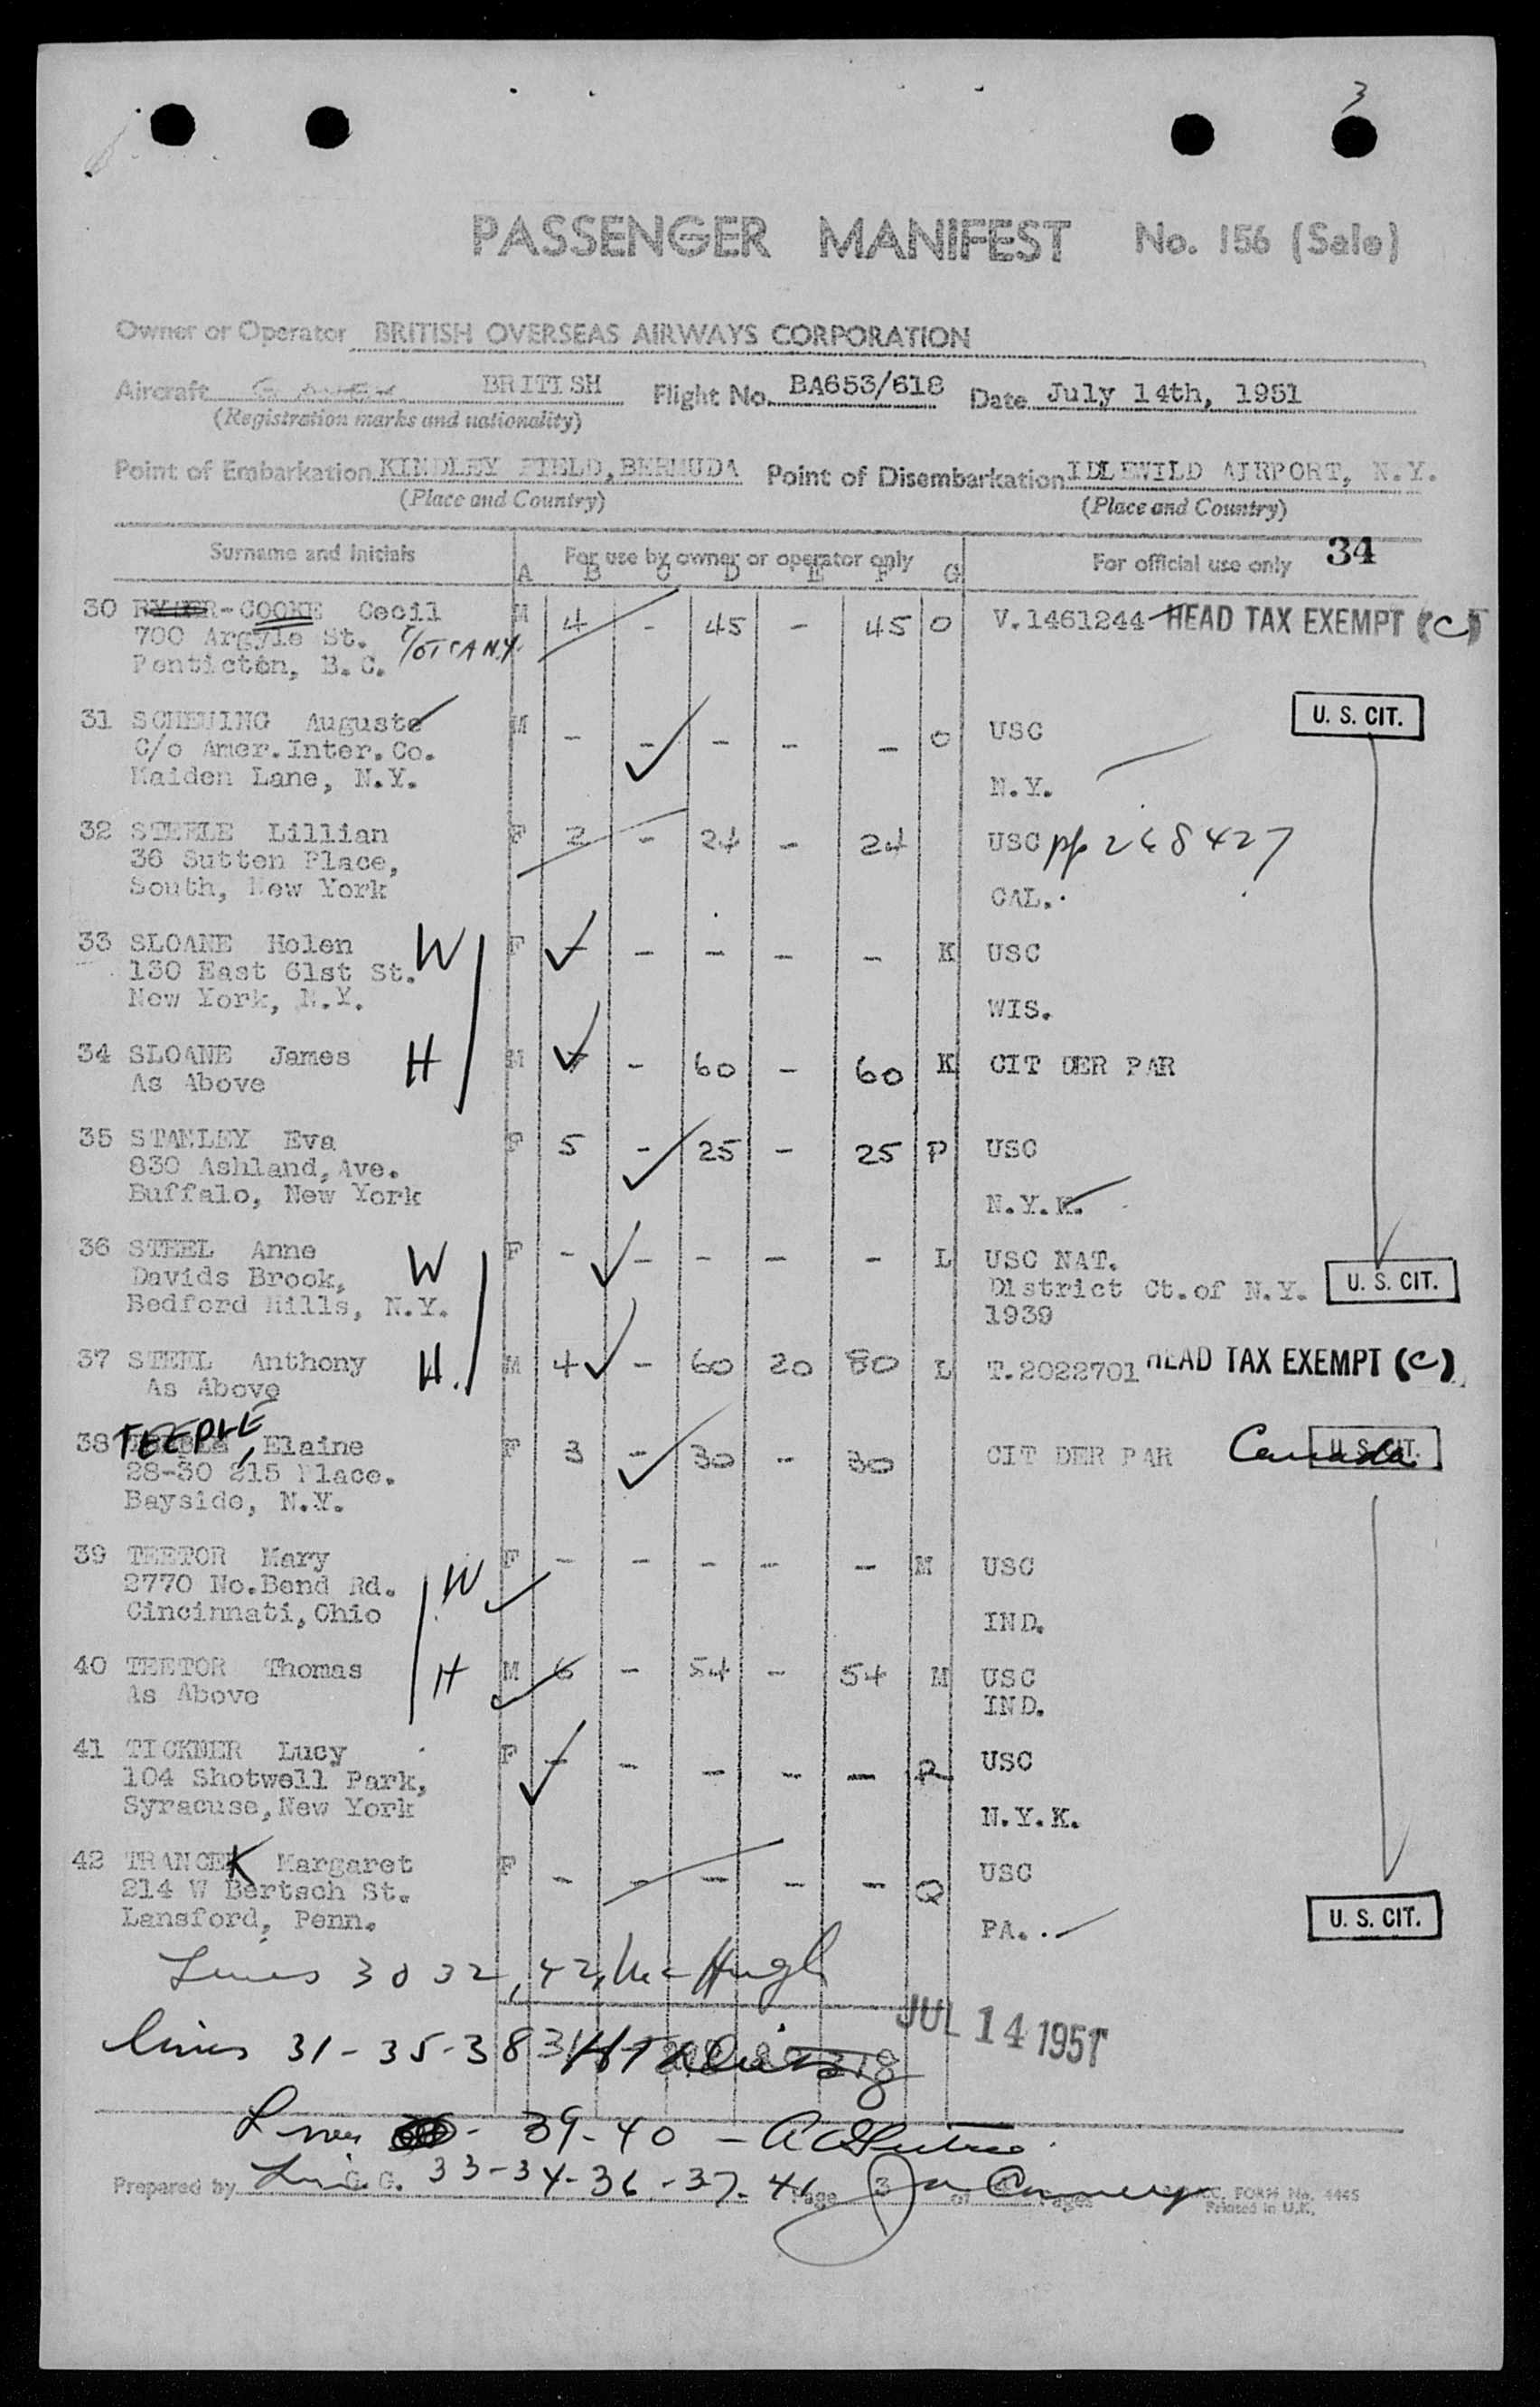 3
PASSENGER MANIFEST No. 156 (Sale)
Owner or Operator BRITISH OVERSEAS AIRWAYS CORPORATION
Aircraft BRITISH Flight No. BA653/618 Date July 14th, 1951
(Registration marks and nationality)
Point of Embarkation KINDLEY FIELD, BERMUDA Point of Disembarkation IDLEWILD AIRPORT, N.Y.
(Place and Country) (Place and Country)
Surname and Initials For use by owner or operator only For official use only 34
A B C D E F G
30 RYDER-COOKE Cecil M 4 - 45 - 45 O V.1461244 HEAD TAX EXEMPT (C)
700 Argyle St.
Penticton, B.C.
31 SCHEUING Auguste M - - - - - O USC U. S. CIT.
C/o Amer.Inter.Co.
Maiden Lane, N.Y. N.Y.
32 STEELE Lillian F 2 - 24 - 24 USC pp 268427
36 Sutton Place,
South, New York CAL.
33 SLOANE Helen W F - - - - - K USC
130 East 61st St.
New York, N.Y. WIS.
34 SLOANE James H M - 60 - 60 K CIT DER PAR
As Above
35 STANLEY Eva F 5 - 25 - 25 P USC
830 Ashland, Ave.
Buffalo, New York N.Y.K.
36 STEEL Anne W F - - - - - L USC NAT.
Davids Brook, District Ct.of N.Y. U. S. CIT.
Bedford Hills, N.Y. 1939
37 STEEL Anthony H. M 4 - 60 20 80 L T.2022701 HEAD TAX EXEMPT (C)
As Above
38 TEEPLE, Elaine F 3 - 30 - 30 CIT DER PAR Canada U. S. CIT.
28-30 215 Place.
Bayside, N.Y.
39 TEETOR Mary W F - - - - - M USC
2770 No.Bend Rd.
Cincinnati, Ohio IND.
40 TEETOR Thomas H M 6 - 54 - 54 M USC
As Above IND.
41 TICKNER Lucy F - - - - - R USC
104 Shotwell Park,
Syracuse, New York N.Y.K.
42 TRANCEK Margaret F - - - - - Q USC
214 W Bertsch St.
Lansford, Penn. PA. U. S. CIT.
Lines 30 32, 42, McHugh
JUL 14 1951
lines 31-35-38
Lines 39-40 -
Prepared by G.G. Lines 33-34-36-37-41 Page 3 of Pages FORM No. 4445
Printed in U.K.